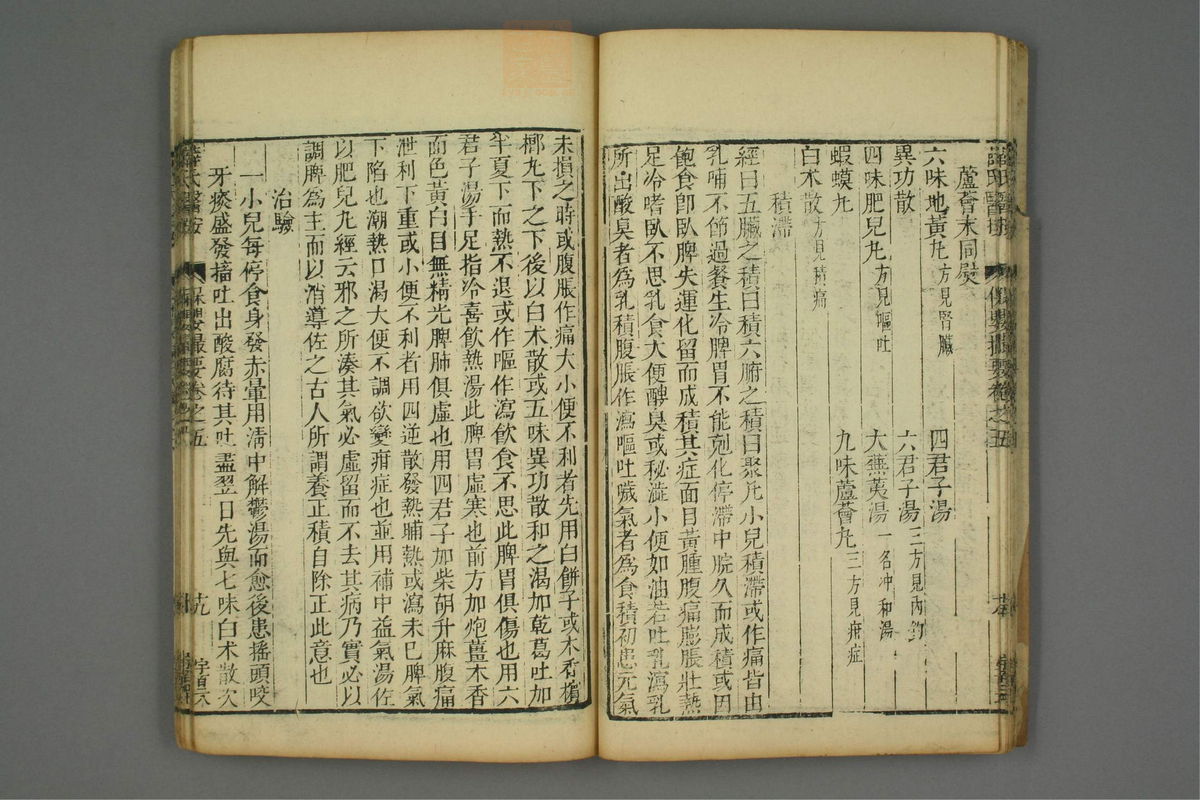 薛氏醫按 保嬰撮要卷之五
蘆薈末同熨
六味地黃丸方見腎臟 四君子湯
異功散 六君子湯三方見內釣
四味肥兒丸方見嘔吐 大蕪荑湯一名冲和湯
蝦蟆丸 九味蘆薈丸三方見疳症
白朮散方見積痛
積滯
經曰五臟之積曰積六腑之積曰聚凡小兒積滯或作痛皆由
乳哺不節過餐生冷脾胃不能剋化停滯中脘久而成積或因
飽食卽臥脾失運化留而成積其症面目黃腫腹痛膨脹壯熱
足冷嗜臥不思乳食大便醙臭或秘澁小便如油若吐乳瀉乳
所出酸臭者爲乳積腹脹作瀉嘔吐噦氣者爲食積初患元氣
未損之時或腹脹作痛大小便不利者先用白餅子或木香檳
榔丸下之下後以白朮散或五味異功散和之渴加乾葛吐加
半夏下而熱不退或作嘔作瀉飲食不思此脾胃俱傷也用六
君子湯手足指冷喜飲熱湯此脾胃虛寒也前方加炮薑木香
面色黃白目無精光脾肺俱虛也用四君子加柴胡升麻腹痛
泄利下重或小便不利者用四逆散發熱晡熱或瀉未已脾氣
下陷也潮熱口渴大便不調欲變疳症也並用補中益氣湯佐
以肥兒丸經云邪之所湊其氣必虛留而不去其病乃實必以
調脾爲主而以消導佐之古人所謂養正積自除正此意也
治驗
一小兒每停食身發赤暈用淸中解鬱湯而愈後患搖頭咬
牙痰盛發搐吐出酸腐待其吐盡翌日先與七味白朮散次
薛氏醫按 保嬰撮要卷之五